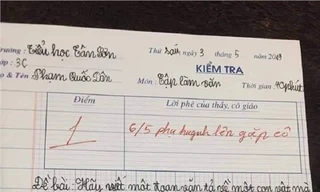 Trường: Tiểu học Tân Sơn
Thứ sáu ngày 3 tháng 5 năm 2019
Lớp: 3C
KIỂM TRA
Họ & Tên Phạm Quốc Dân
Môn: Tập làm văn
Thời gian: 40 phút
Điểm
Lời phê của thầy, cô giáo
1
6/5 phụ huynh lên gặp cô
Đề bài: Hãy viết một đoạn văn tả về một con vật mà